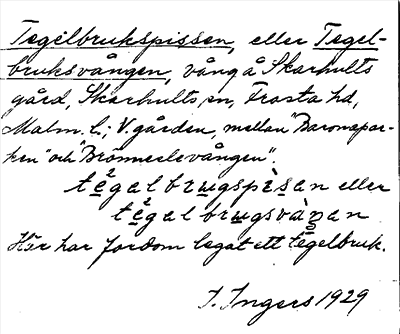 Tegelbrukspissen, eller Tegel-
bruksvången, vång å Skarhults
gård, Skarhults sn, Frosta hd,
Malm. l.; V. gården, mellan "Baronspar-
ken" och "Brömeslevången".
te²galbrugspìsan eller
te²galbrugsvàŋan
Här har fordom legat ett tegelbruk.
I. Ingers 1929